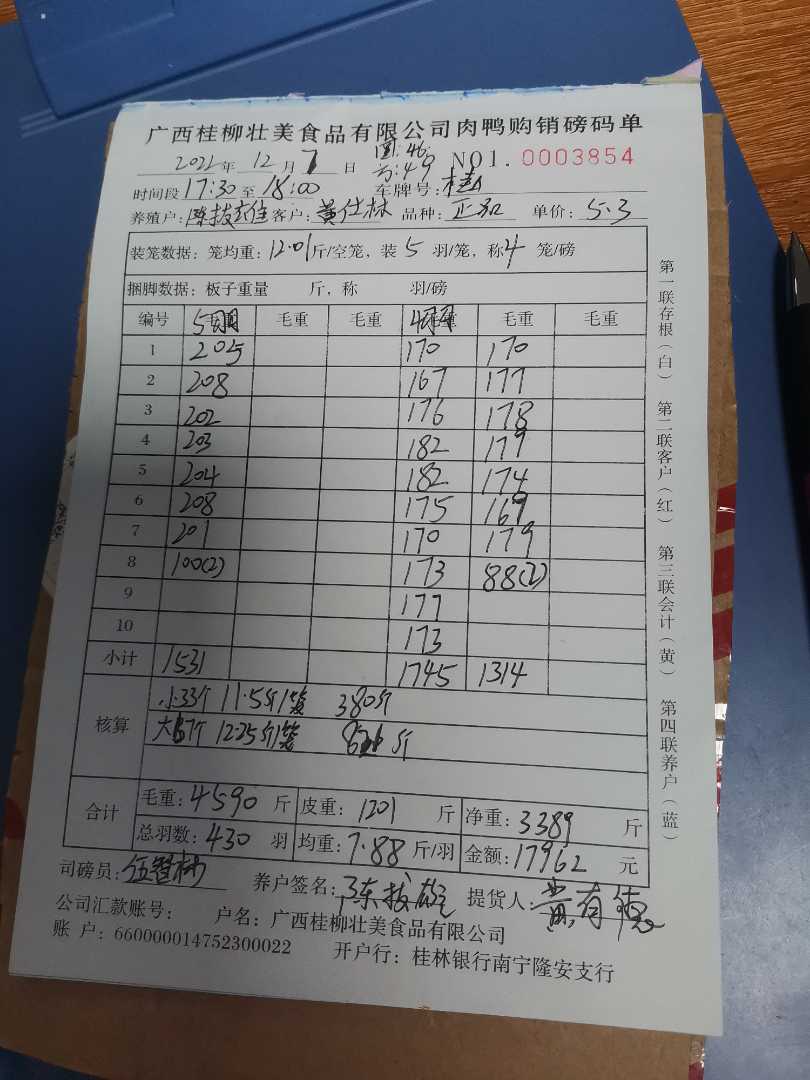 广西桂柳壮美食品有限公司肉鸭购销磅码单
2022年 12 月 7 日 圆:46 方:49 NO1. 0003854
时间段 17:30 至 18:00 车牌号: 桂A
养殖户: 陈拔雄 客户: 黄仕林 品种: 正加 单价: 5.3
装笼数据: 笼均重: 12.01 斤/空笼, 装 5 羽/笼, 称 4 笼/磅
捆脚数据: 板子重量 斤, 称 羽/磅
编号 毛重 毛重 毛重 毛重 毛重 毛重
1 205 170 170
2 208 167 177
3 202 176 178
4 203 182 179
5 204 182 174
6 208 175 169
7 201 170 179
8 100(2) 173 88(2)
9 177
10 173
小计 1531 1745 1314
核算
小33个 11.5斤/笼 380斤
12.25斤/笼 斤
合计
毛重: 4590 斤 皮重: 1201 斤 净重: 3389 斤
总羽数: 430 羽 均重: 7.88 斤/羽 金额: 17962 元
司磅员: 伍智彬 养户签名: 陈拔雄 提货人: 黄有德
公司汇款账号: 户名: 广西桂柳壮美食品有限公司
账 户: 660000014752300022 开户行: 桂林银行南宁隆安支行
第一联存根(白) 第二联客户(红) 第三联会计(黄) 第四联养户(蓝)